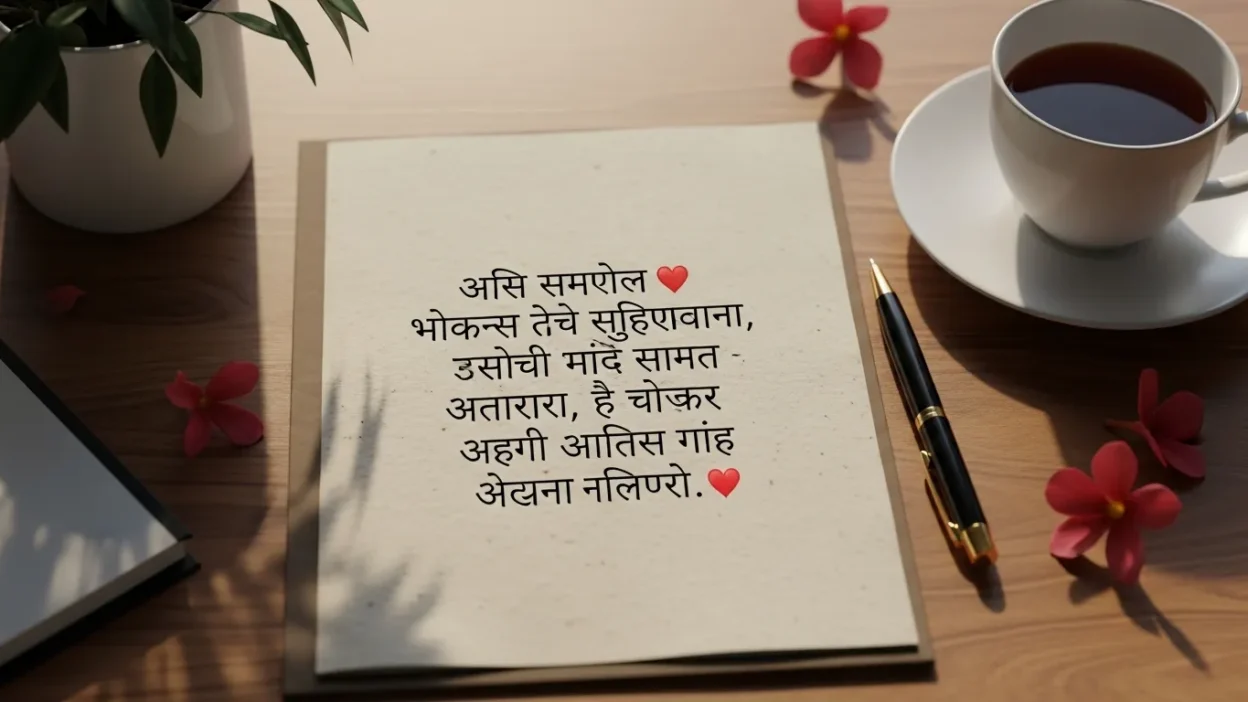 असि समऐल ❤️
भोकन्स तेचे सुहिएावाना,
उसोची मांदे सामत -
अतारारा, है चोकर
अहगी आतिस गांह
अेखना नलिण्रो.❤️